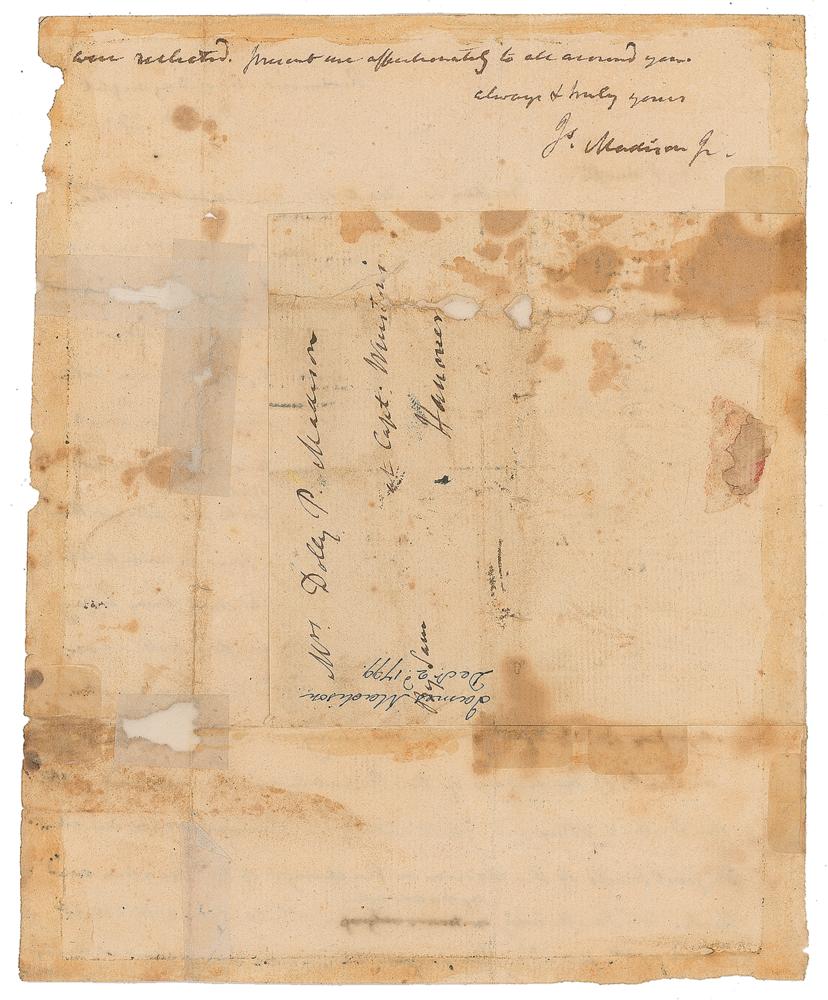 were reelected. present me affectionately to all around you.
always & truly yours
Js. Madison Jr.
Mrs. Dolley P. Madison
at Capt. Winston's
Hanover
by Sam
James Madison.
Decr. 2d. 1799.